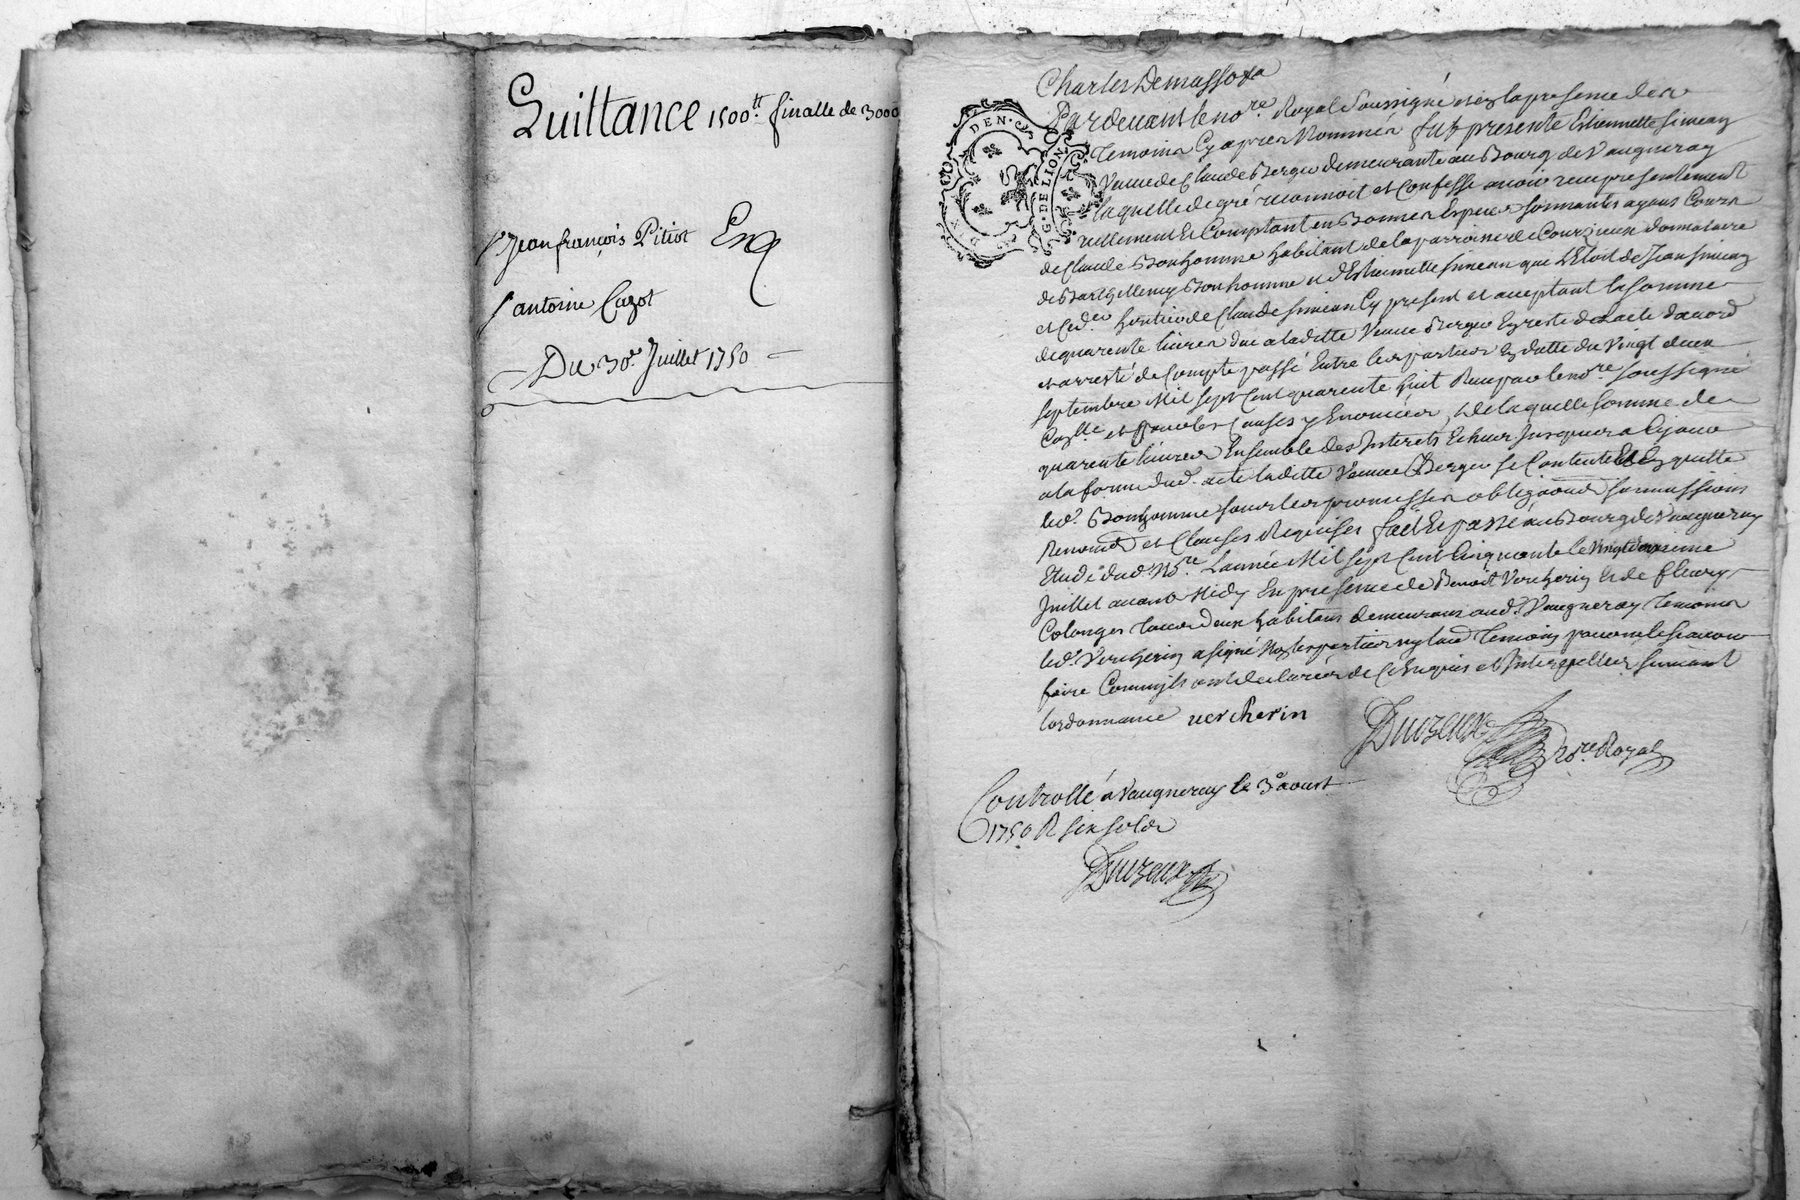 Quittance 1500.tt finalle de 3000
Sr Jean françois Pitiot
Sr antoine Cazot
Du 30e Juillet 1750
Charles Demassoxa
Pardevant le nore. Royal Soussigné et en la presence des
Temoins Cy apres Nommés fut presente Estiennette Simean
Veuve de Claude Berger demeurante au Bourg de Vaugneray
laquelle de gré reconnoit et Confesse avoir receu presentement
rellement et Comptant en Bonnes Especes sonnantes ayans Cours
de Claude Bonhomme habitant de la parroisse de Courzieux donnataire
de Barthellemy Bonhomme et d'Estiennette Simean que L'Etoit de Jean Simean
et led. heritier de Claude Simean Cy present et acceptant la somme
de quarente livres due a laditte Veuve Berger En reste de acte d'acord
et arresté de Compte passé Entre les parties En datte du Vingt deux
septembre Mil sept Cent quarente huit Receu par le nore soussigné
et pour les Causes y Enoncées, de laquelle somme de
quarente livres Ensemble des Interets Echeus Jusques a Cejour
a la forme dud. acte laditte Veuve Berger se Contente Et En quitte
led. Bonhomme sous les promesses obligaons soumissions
Renons et Clauses Requises fait Et passé au Bourg de Vaugneray
Etude dud. Nore. L'année Mil sept Cent Cinquante le Vingt
Juillet avant Midy En presence de Benoit Vercherin Et de fleury
Colonges tous deux habitans demeurans aud. Vaugneray Temoins
led. Vercherin a signé Non les parties ny laud. Temoin pour ne le sçavoir
faire Comm'ils ont declarés de Ce Enquis et Interpellés suivant
lordonnance vercherin
Duvzeux nore Royal
Controllé a Vaugneray le 3e aoust
1750 R six sols
Duvzeux
G. DE LION